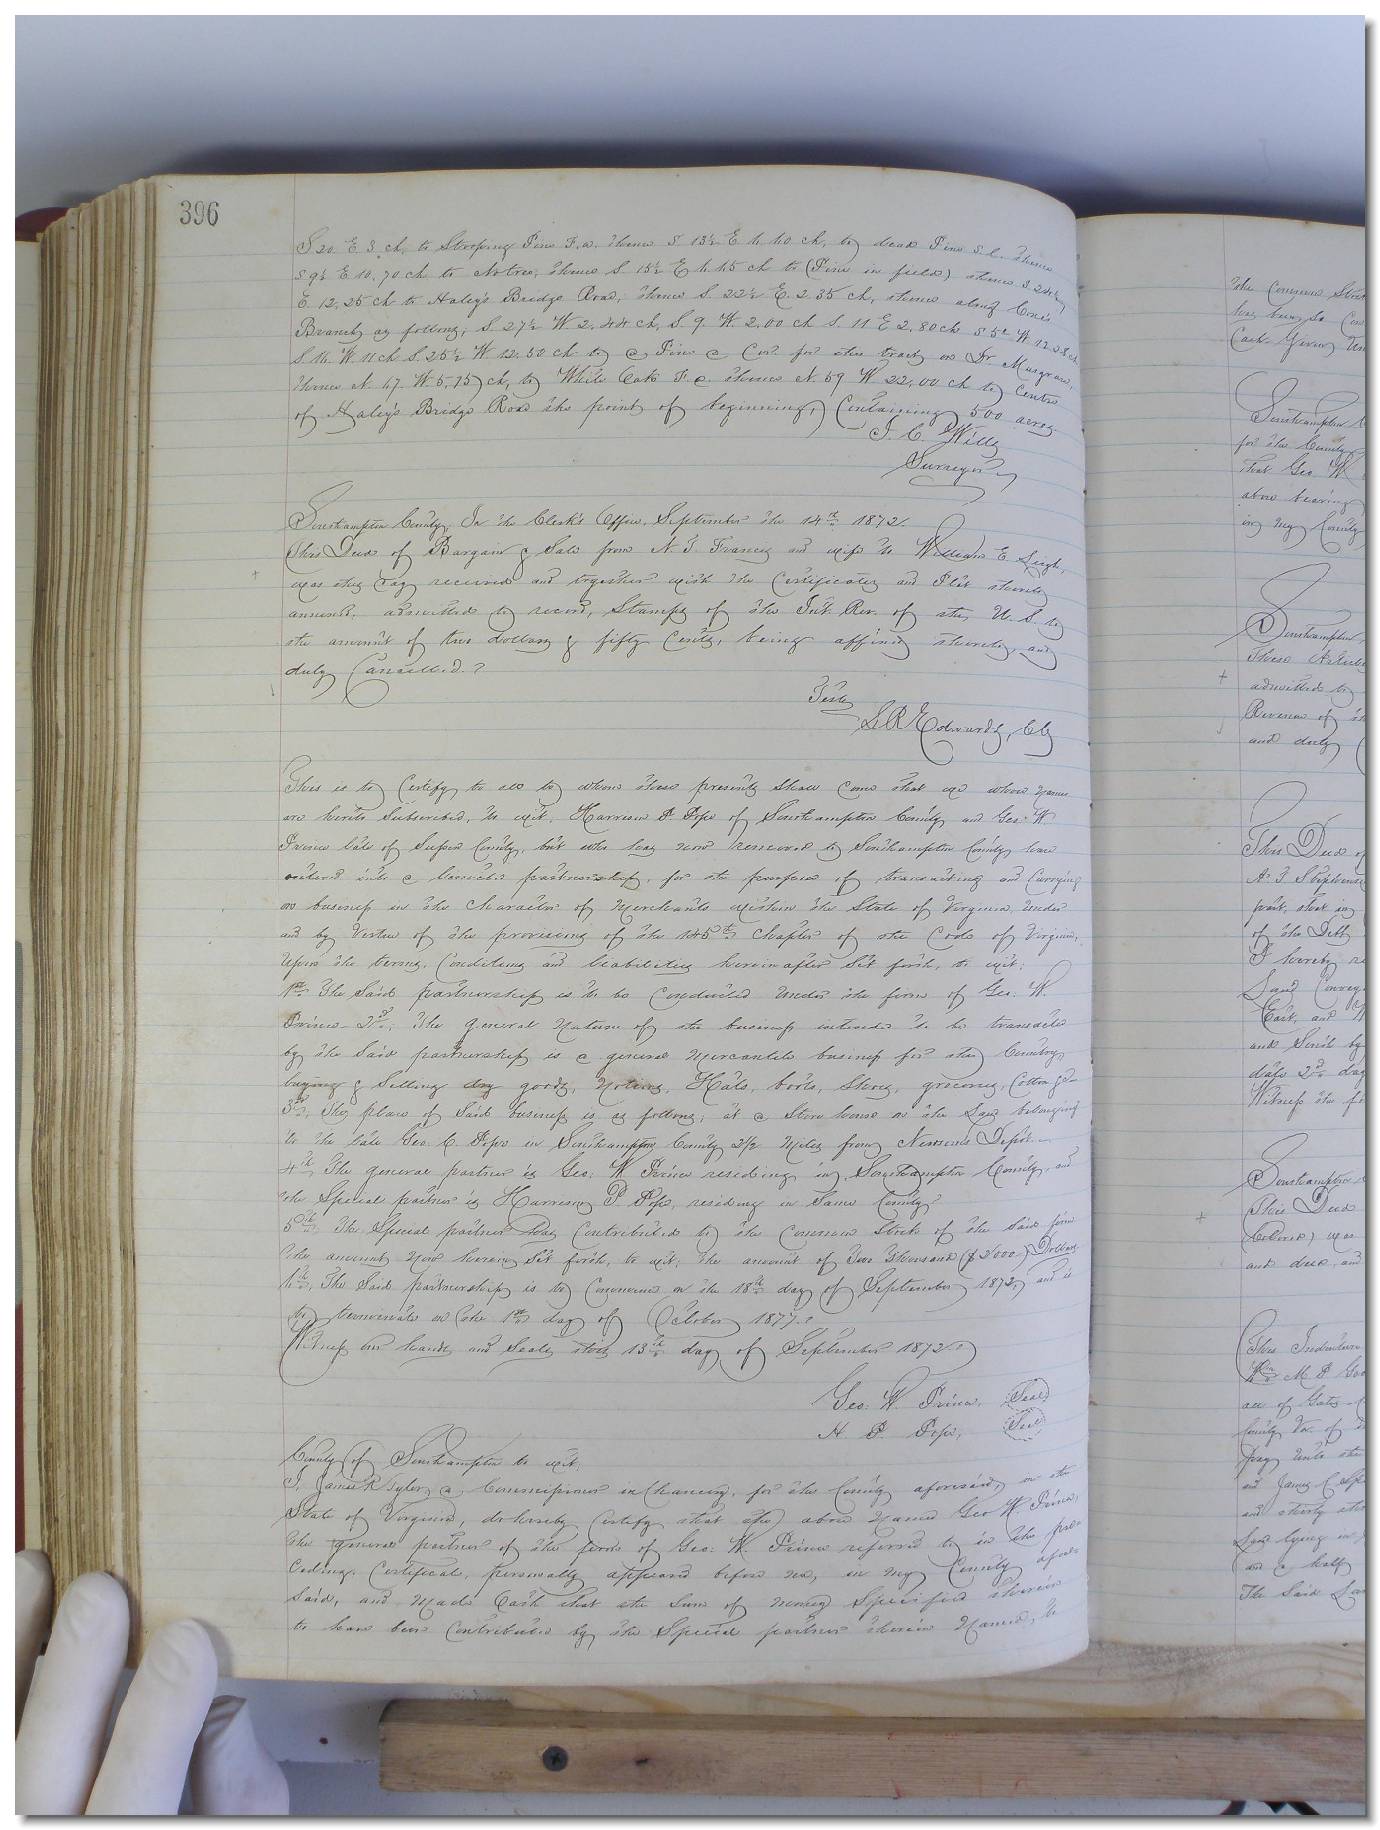 396
S 20 E 3 ch, to Stooping Pine F.a. thence S 13½ E 4.40 ch, to dead Pine S.C. thence
S 9½ E 10.70 ch to No tree, thence S. 15½ E 4.45 ch to (Pine in field) thence S 24½
E. 12.25 ch to Haley's Bridge Road, thence S. 22½ E. 2.35 ch, thence along
Branch as follows; S. 27½ W 2.44 ch, S. 9. W. 2.00 ch S. 11 E 2.80 ch
S. 16. W 11 ch S. 25½ W 12.50 ch to a Pine a Cor. for this tract on Dr. Musgrave,
thence N. 47. W. 5.75 ch, to White Oak F. a. thence N. 59 W 22.00 ch to centre
of Haley's Bridge Road the point of beginning, Containing 500 acres
J. C. Wills
Surveyor
Southampton County, In the Clerk's Office, September the 14th 1872.
This Deed of Bargain & Sale from N. T. Francis and wife to William E Leigh,
was this day received and together with the Certificates and Plat thereto
annexed, admitted to record, Stamps of the Int. Rev. of the U. S. to
the amount of two dollars & fifty Cents, being affixed thereto, and
duly Cancelled.
Teste
L R Edwards, Clk
This is to Certify to all to whom these presents shall come that we whose names
are hereto Subscribed, to wit, Harrison P. Pope of Southampton County and Geo: W.
Prince late of Sussex County, but who has now removed to Southampton County have
entered into a limited partnership, for the purpose of transacting and Carrying
on business in the Character of Merchants within the State of Virginia, under
and by Virtue of the provisions of the 145th Chapter of the Code of Virginia,
Upon the terms, Conditions and liabilities hereinafter Set forth, to wit:
1st The Said partnership is to be Conducted under the firm of Geo: W.
Prince. 2nd, The general Nature of the business intended to be transacted
by the Said partnership is a general Mercantile business for the Country,
buying & Selling dry goods, Notions, Hats, boots, Shoes, groceries, Cotton &c
3rd, The place of Said business is as follows; at a Store house on the Land belonging
to the late Geo. C. Pope in Southampton County 2½ Miles from Newsoms Depot.
4th The general partner is Geo: W Prince residing in Southampton County, and
the Special partner is Harrison P Pope, residing in Same County.
5th, The Special partner has Contributed to the Common Stock of the Said firm
the amount Now herein Set forth, to wit; the amount of Two Thousand ($2000) Dollars
6th, The Said partnership is to Commence on the 18th day of September 1872, and is
to terminate on the 1st day of October 1877.
Witness our hands and Seals this 13th day of September 1872.
Geo: W. Prince, Seal
H. P. Pope, Seal
County of Southampton to wit:
I, James R Tyler, a Commissioner in Chancery, for the County aforesaid, in the
State of Virginia, do hereby Certify that the above Named Geo W. Prince,
the general partner of the firm of Geo: W. Prince referred to in the pre-
ceding Certificate, personally appeared before me, in my County afore-
Said, and Made Oath that the Sum of Money Specified therein
to have been Contributed by the Special partner therein Named, to
the Common Stock
has been so
Cash. Given
Southampton
for the County
that Geo. W
above bearing
in my County
Southampton
These
admitted to
Revenue of
and duly
This Deed of
part, that in
of the Debt
I hereby
Land Convey
East, and
and South by
date 2nd day
Witness the
Southampton
This Deed
Colored) was
and
This Indenture
of Gates
County Va. of
and James C
and thirty
Land lying in
and a half
The Said Land